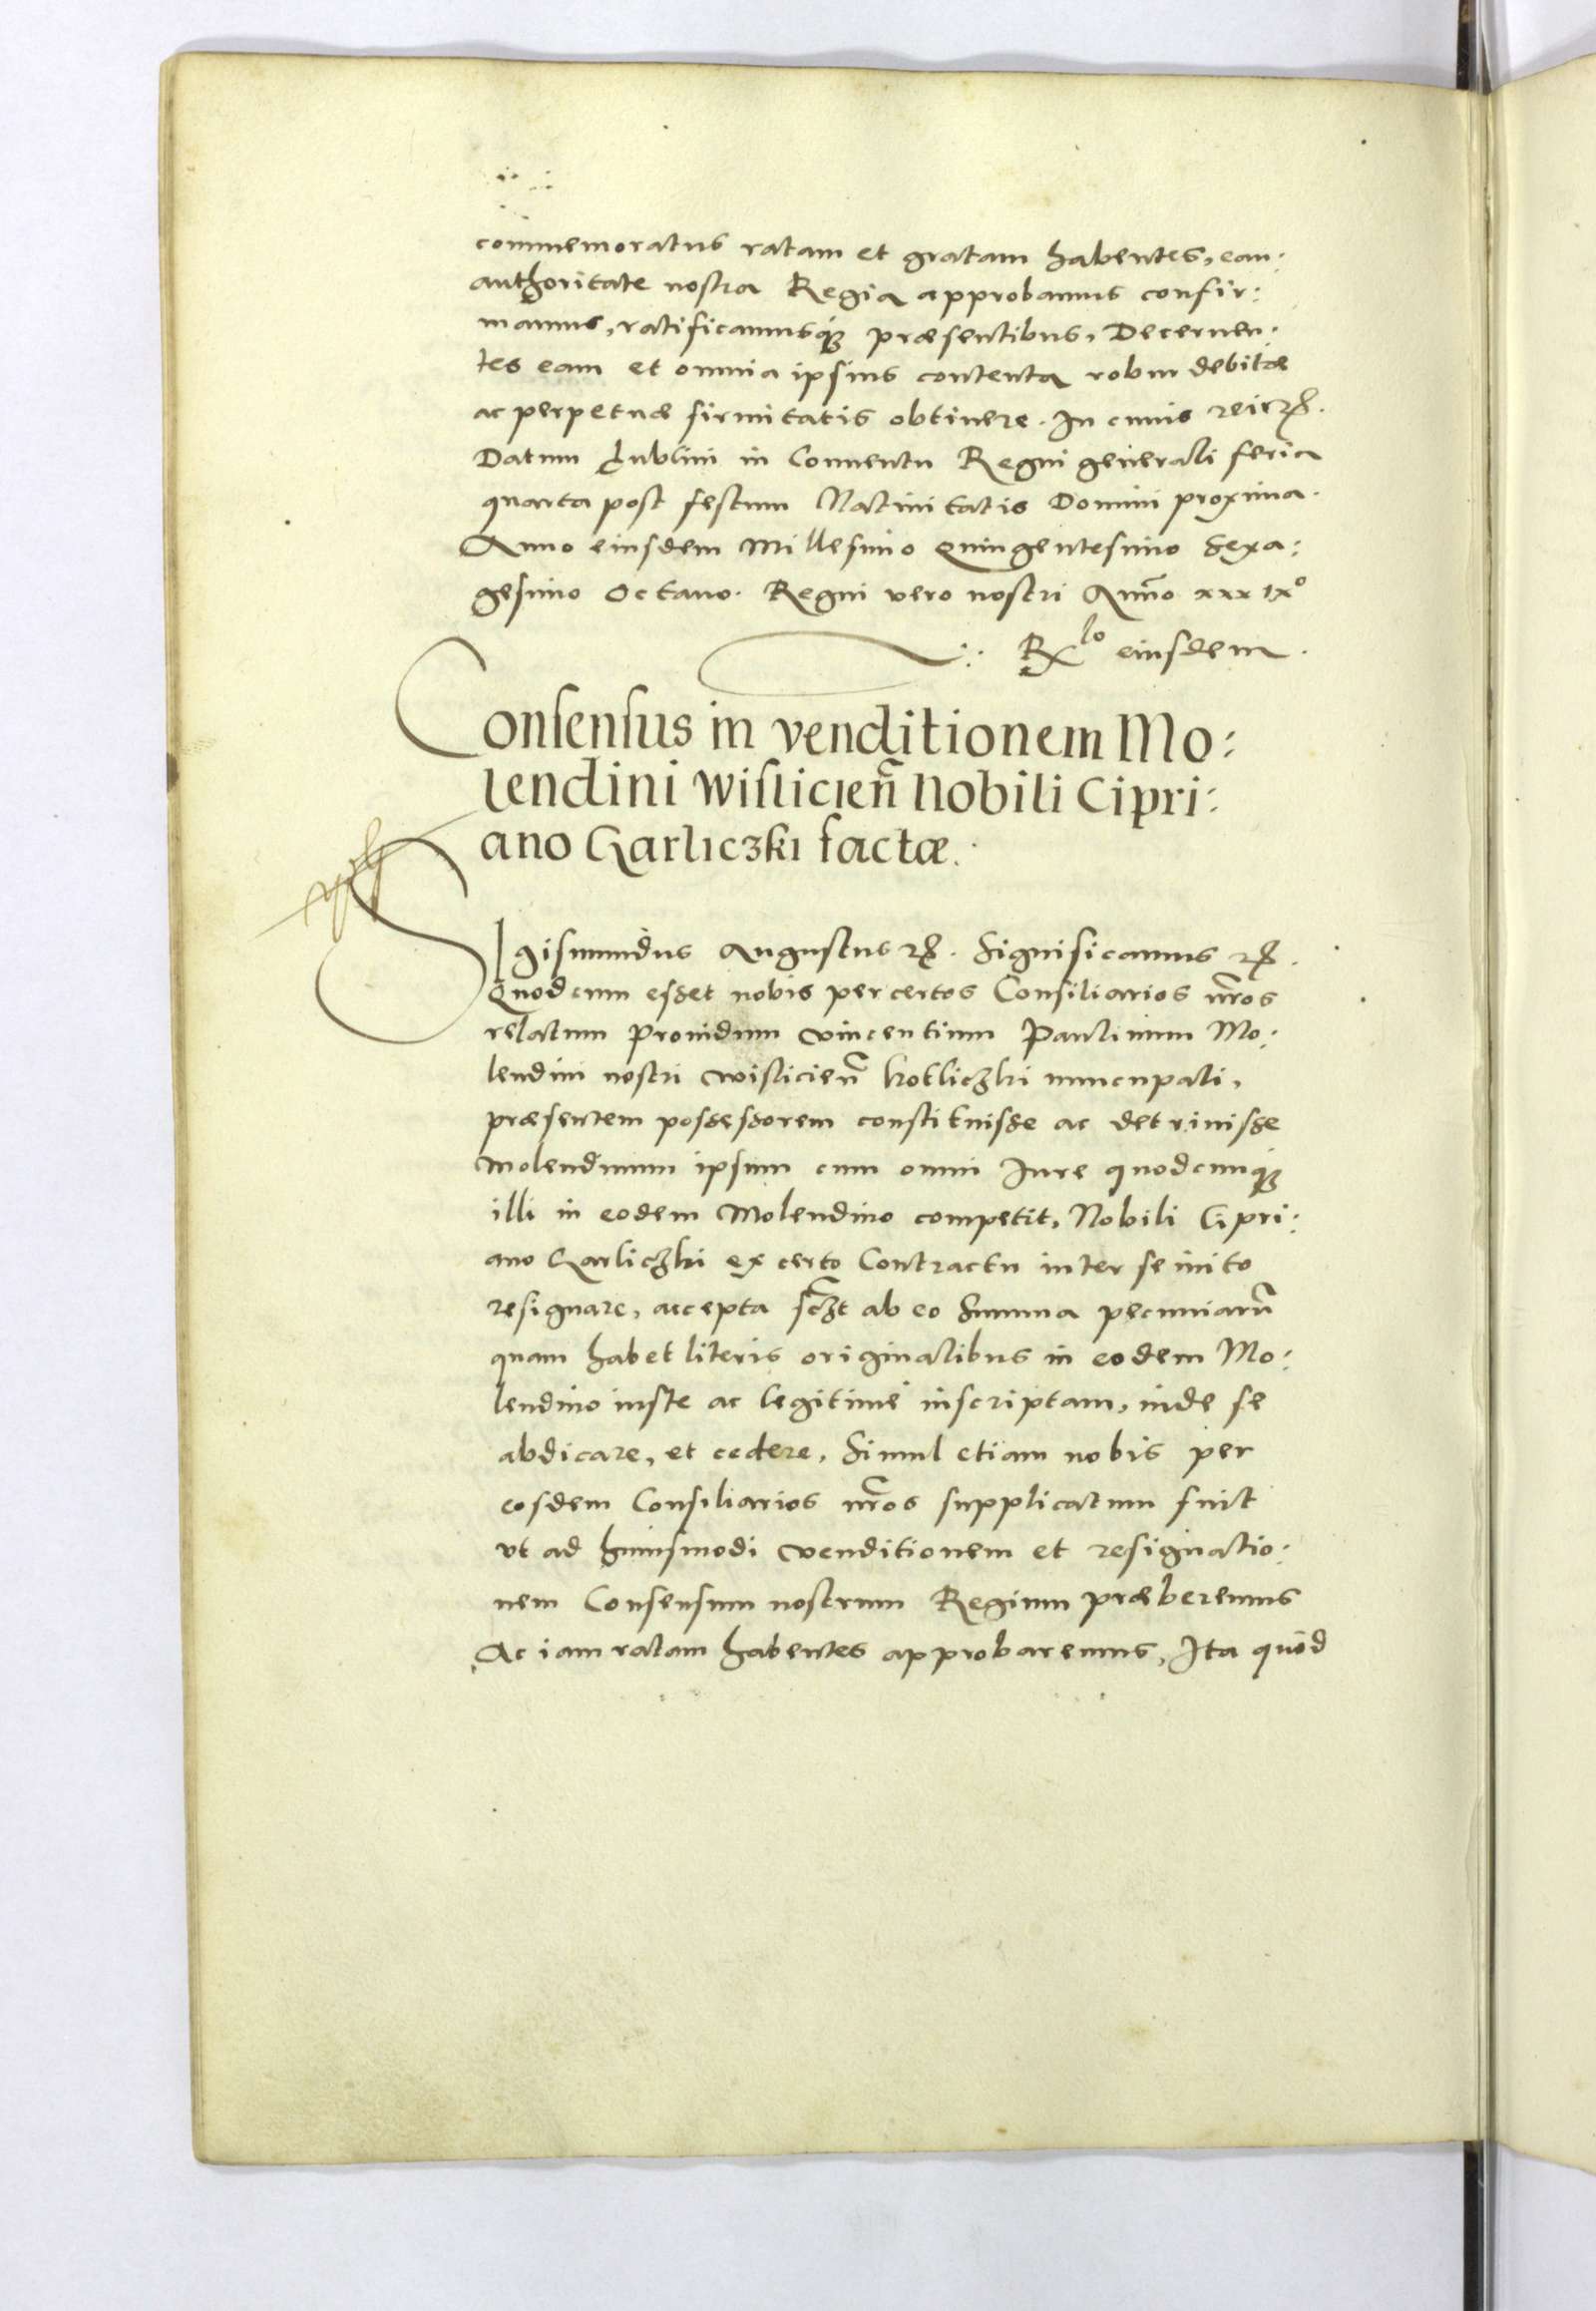 commemoratus ratam et gratam habentes, eam:
authoritate nostra Regia approbamus confir:
mamus, ratificamusq3 præsentibus, Decernen:
tes eam et omnia ipsius contenta robur debitæ
ac perpetuæ firmitatis obtinere. In cuius rei etc.
Datum Lublini in Conuentu Regni generali feria
quarta post festum Natiuitatis Domini proxima.
Anno eiusdem Millesimo Quingentesimo Sexa:
gesimo Octauo. Regni vero nostri Anno xxxıx°
Rlo eiusdem.
Consensus in venditionem Mo:
lendini Wislicieñ Nobili Cipri:
ano Garliczki factæ.
SIgismundus Augustus etc. Significamus etc.
Quod cum esset nobis per certos Consiliarios nr̃os
relatum Prouidum Vincentium Paulinum Mo:
lendini nostri Wislicieñ Kotliczki nuncupati,
præsentem possessorem constituisse ac
Molendinum ipsum cum omni Iure quodcunq3
illi in eodem Molendino competit, Nobili Cipri:
ano Garliczki ex certo Contractu inter se inito
resignare, accepta sc̃zt ab eo Summa pecuniarũ
quam habet literis originalibus in eodem Mo:
lendino iuste ac legitimè inscriptam, inde se
abdicare, et cedere, Simul etiam nobis per
eosdem Consiliarios nr̃os supplicatum fuit
vt ad huiusmodi venditionem et resignatio:
nem Consensum nostrum Regium præberemus
Ac iam ratam habentes approbaremus, Ita quòd